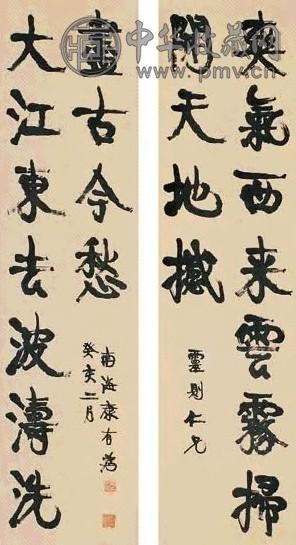 中华收藏网
www.pmv.cn
爽氣西来雲霧掃
開天地撼
靈則仁兄
大江東去波濤洗
盡古今愁
癸亥二月
南海康有為